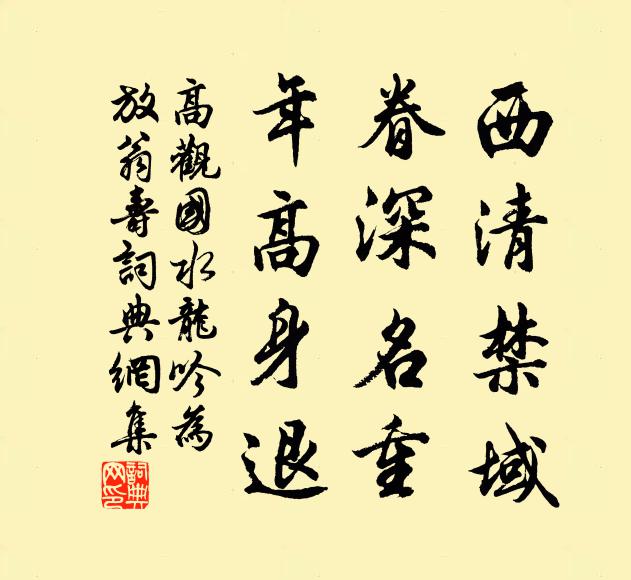 西清禁域
眷深名重
年高身退
高觀國水龍吟為
放翁壽詞典網集
詞典網印